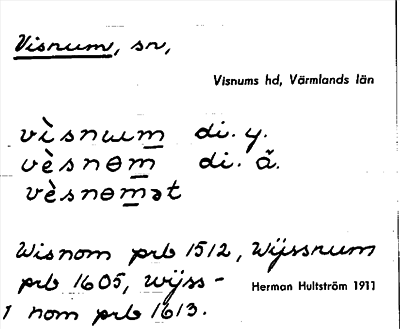 Visnum, sn,
Visnums hd, Värmlands län
vìsnɯm di. y.
vèsnɵm di. ä.
vèsnɵmət
Wisnom prb 1512, Wijssnum
prb 1605, Wijss-
Herman Hultström 1911
1 nom prb 1613.